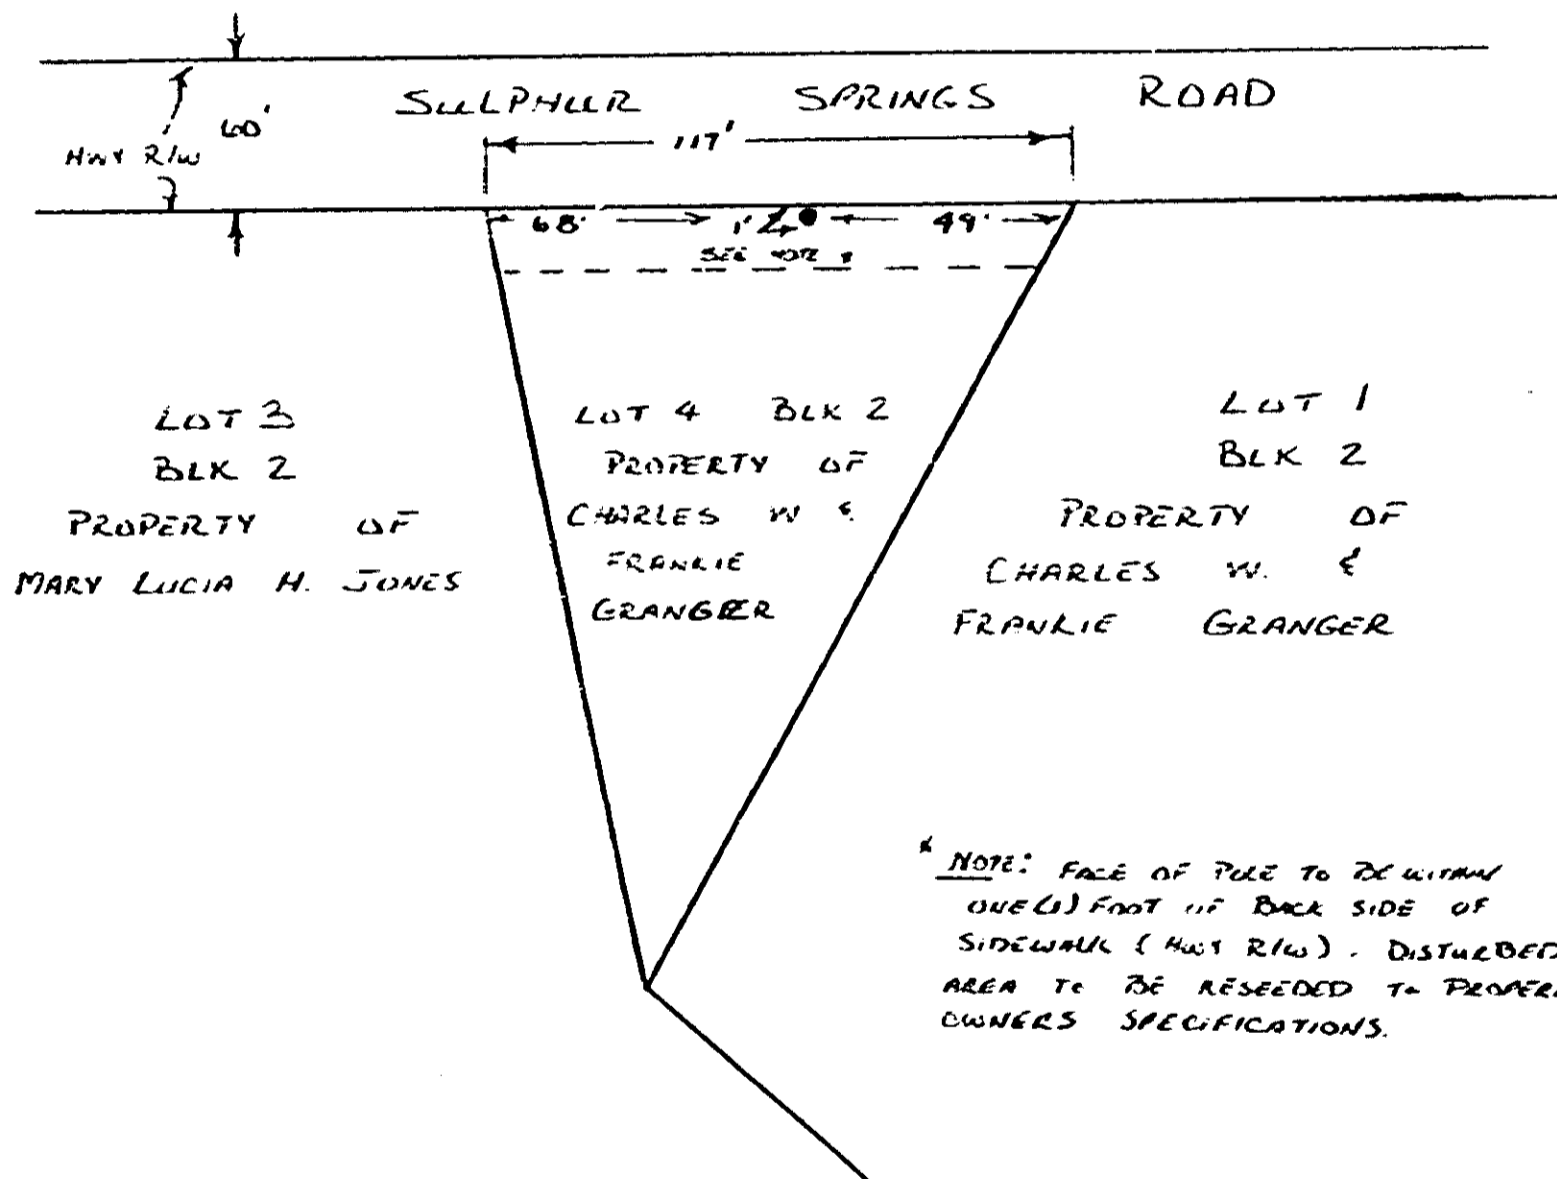 SULPHUR SPRINGS ROAD
60'
HWY R/W
117'
68' 1' 49'
SEE NOTE *
LOT 3
BLK 2
PROPERTY OF
MARY LUCIA H. JONES
LOT 4 BLK 2
PROPERTY OF
CHARLES W &
FRANKIE
GRANGER
LOT 1
BLK 2
PROPERTY OF
CHARLES W. &
FRANKIE GRANGER
* NOTE: FACE OF POLE TO BE WITHIN
ONE (1) FOOT OF BACK SIDE OF
SIDEWALK (HWY R/W). DISTURBED
AREA TO BE RESEEDED TO PROPER
OWNERS SPECIFICATIONS.